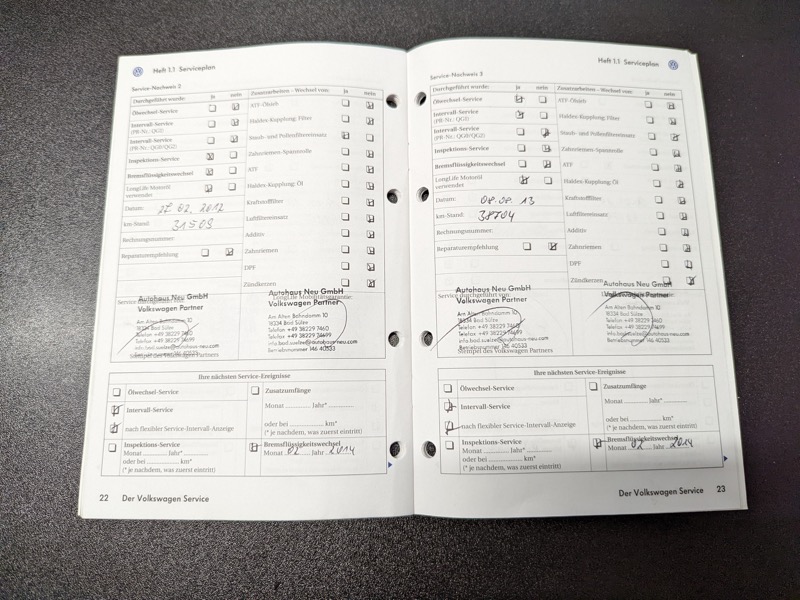 Heft 1.1 Serviceplan
Service-Nachweis 2
Durchgeführt wurde: ja nein
Ölwechsel-Service
Intervall-Service
(PR-Nr.: QG1)
Intervall-Service
(PR-Nr.: QG0/QG2)
Inspektions-Service
Bremsflüssigkeitswechsel
LongLife-Motoröl
verwendet
Datum: 27. 02. 2012
km-Stand: 31509
Rechnungsnummer:
Reparaturempfehlung
Zusatzarbeiten - Wechsel von: ja nein
ATF-Ölsieb
Haldex-Kupplung: Filter
Staub- und Pollenfiltereinsatz
Zahnriemen-Spannrolle
ATF
Haldex-Kupplung: Öl
Kraftstofffilter
Luftfiltereinsatz
Additiv
Zahnriemen
DPF
Zündkerzen
Autohaus Neu GmbH
Volkswagen Partner
Am Alten Bahndamm 10
18334 Bad Sülze
Telefon +49 38229 7460
Telefax +49 38229 74699
info.bad.suelze@autohaus-neu.com
Stempel des Volkswagen Partners
LongLife Mobilitätsgarantie:
Autohaus Neu GmbH
Volkswagen Partner
Am Alten Bahndamm 10
18334 Bad Sülze
Telefon +49 38229 7460
Telefax +49 38229 74699
info.bad.suelze@autohaus-neu.com
Betriebsnummer 146 40533
Ihre nächsten Service-Ereignisse
Ölwechsel-Service
Intervall-Service
nach flexibler Service-Intervall-Anzeige
Inspektions-Service
Monat Jahr*
oder bei km*
(*je nachdem, was zuerst eintritt)
Zusatzumfänge
Monat Jahr*
oder bei km*
(* je nachdem, was zuerst eintritt)
Bremsflüssigkeitswechsel
Monat 02 Jahr 2014
22 Der Volkswagen Service
Heft 1.1 Serviceplan
Service-Nachweis 3
Durchgeführt wurde: ja nein
Ölwechsel-Service
Intervall-Service
(PR-Nr.: QG1)
Intervall-Service
(PR-Nr.: QG0/QG2)
Inspektions-Service
Bremsflüssigkeitswechsel
LongLife-Motoröl
verwendet
Datum: 08. 08. 13
km-Stand: 38704
Rechnungsnummer:
Reparaturempfehlung
Zusatzarbeiten - Wechsel von: ja nein
ATF-Ölsieb
Haldex-Kupplung: Filter
Staub- und Pollenfiltereinsatz
Zahnriemen-Spannrolle
ATF
Haldex-Kupplung: Öl
Kraftstofffilter
Luftfiltereinsatz
Additiv
Zahnriemen
DPF
Zündkerzen
Service durchgeführt von:
Autohaus Neu GmbH
Volkswagen Partner
Am Alten Bahndamm 10
18334 Bad Sülze
Telefon +49 38229 7460
Telefax +49 38229 74699
info.bad.suelze@autohaus-neu.com
Betriebsnummer 146 40533
Stempel des Volkswagen Partners
Autohaus Neu GmbH
Volkswagen Partner
Am Alten Bahndamm 10
18334 Bad Sülze
Telefon +49 38229 7460
Telefax +49 38229 74699
info.bad.suelze@autohaus-neu.com
Betriebsnummer 146 40533
Ihre nächsten Service-Ereignisse
Ölwechsel-Service
Intervall-Service
nach flexibler Service-Intervall-Anzeige
Inspektions-Service
Monat Jahr*
oder bei km*
(*je nachdem, was zuerst eintritt)
Zusatzumfänge
Monat Jahr*
oder bei km*
(* je nachdem, was zuerst eintritt)
Bremsflüssigkeitswechsel
Monat 02 Jahr 2014
Der Volkswagen Service 23